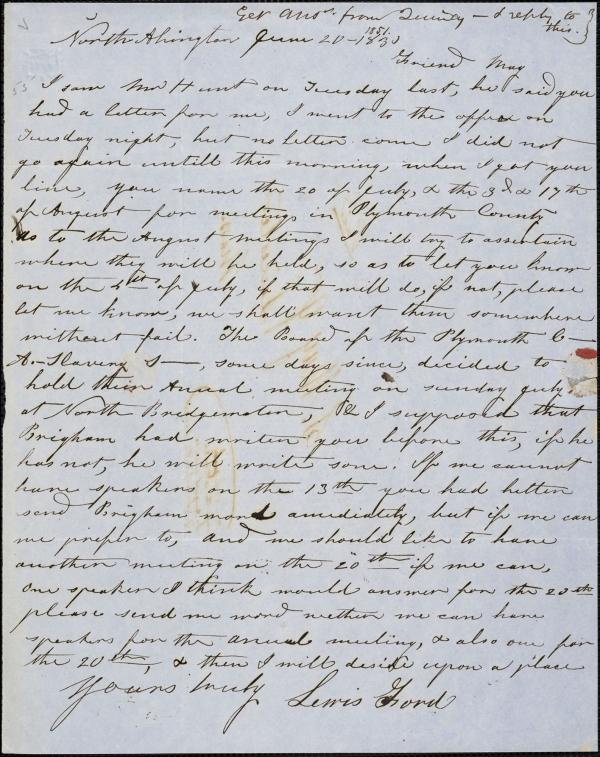 Get Ansr. from Quincy — & reply to
this.
1851.
North Abington June 20 - 183
Friend May
I saw Mr Hunt on Tuesday last, he said you
had a letter for me, I went to the office on
Tuesday night, but no letter come I did not
go again untill this morning, when I got your
line, you name the 20 of July, & the 3d & 17th
of August for meetings in Plymouth County
As to the August meetings I will try to assertain
where they will be held, so as to let you know
on the 4th of July, if that will do, if not, please
let me know, we shall want them somewhere
without fail. The Board of the Plymouth C—
A-Slavery S—, some days since, decided to
hold their Anual meeting on sunday july
at North Bridgewater, & I supposed that
Brigham had writen you before this, if he
has not, he will write sone. If we cannot
have speakers on the 13th you had better
send Brigham word amediately, but if we can
we prefer to, and we should like to have
another meeting on the 20th if we can,
one speaker I think would answer for the 20th
please send me word wether we can have
speakers for the anual meeting, & also one for
the 20th, & then I will deside upon a place
Yours truly Lewis Ford